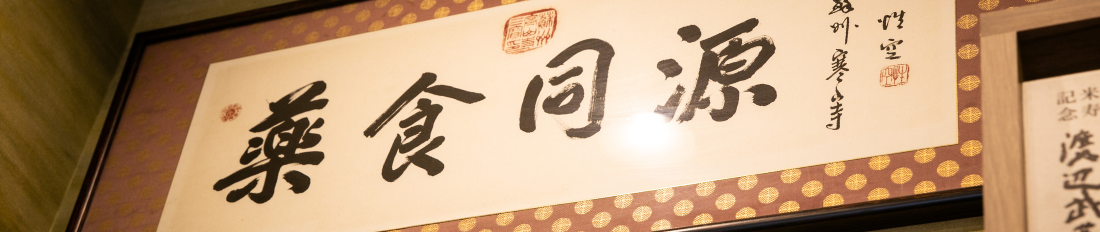 藥食同源
蘇州寒山寺
性空
米寿
記念
渡辺武